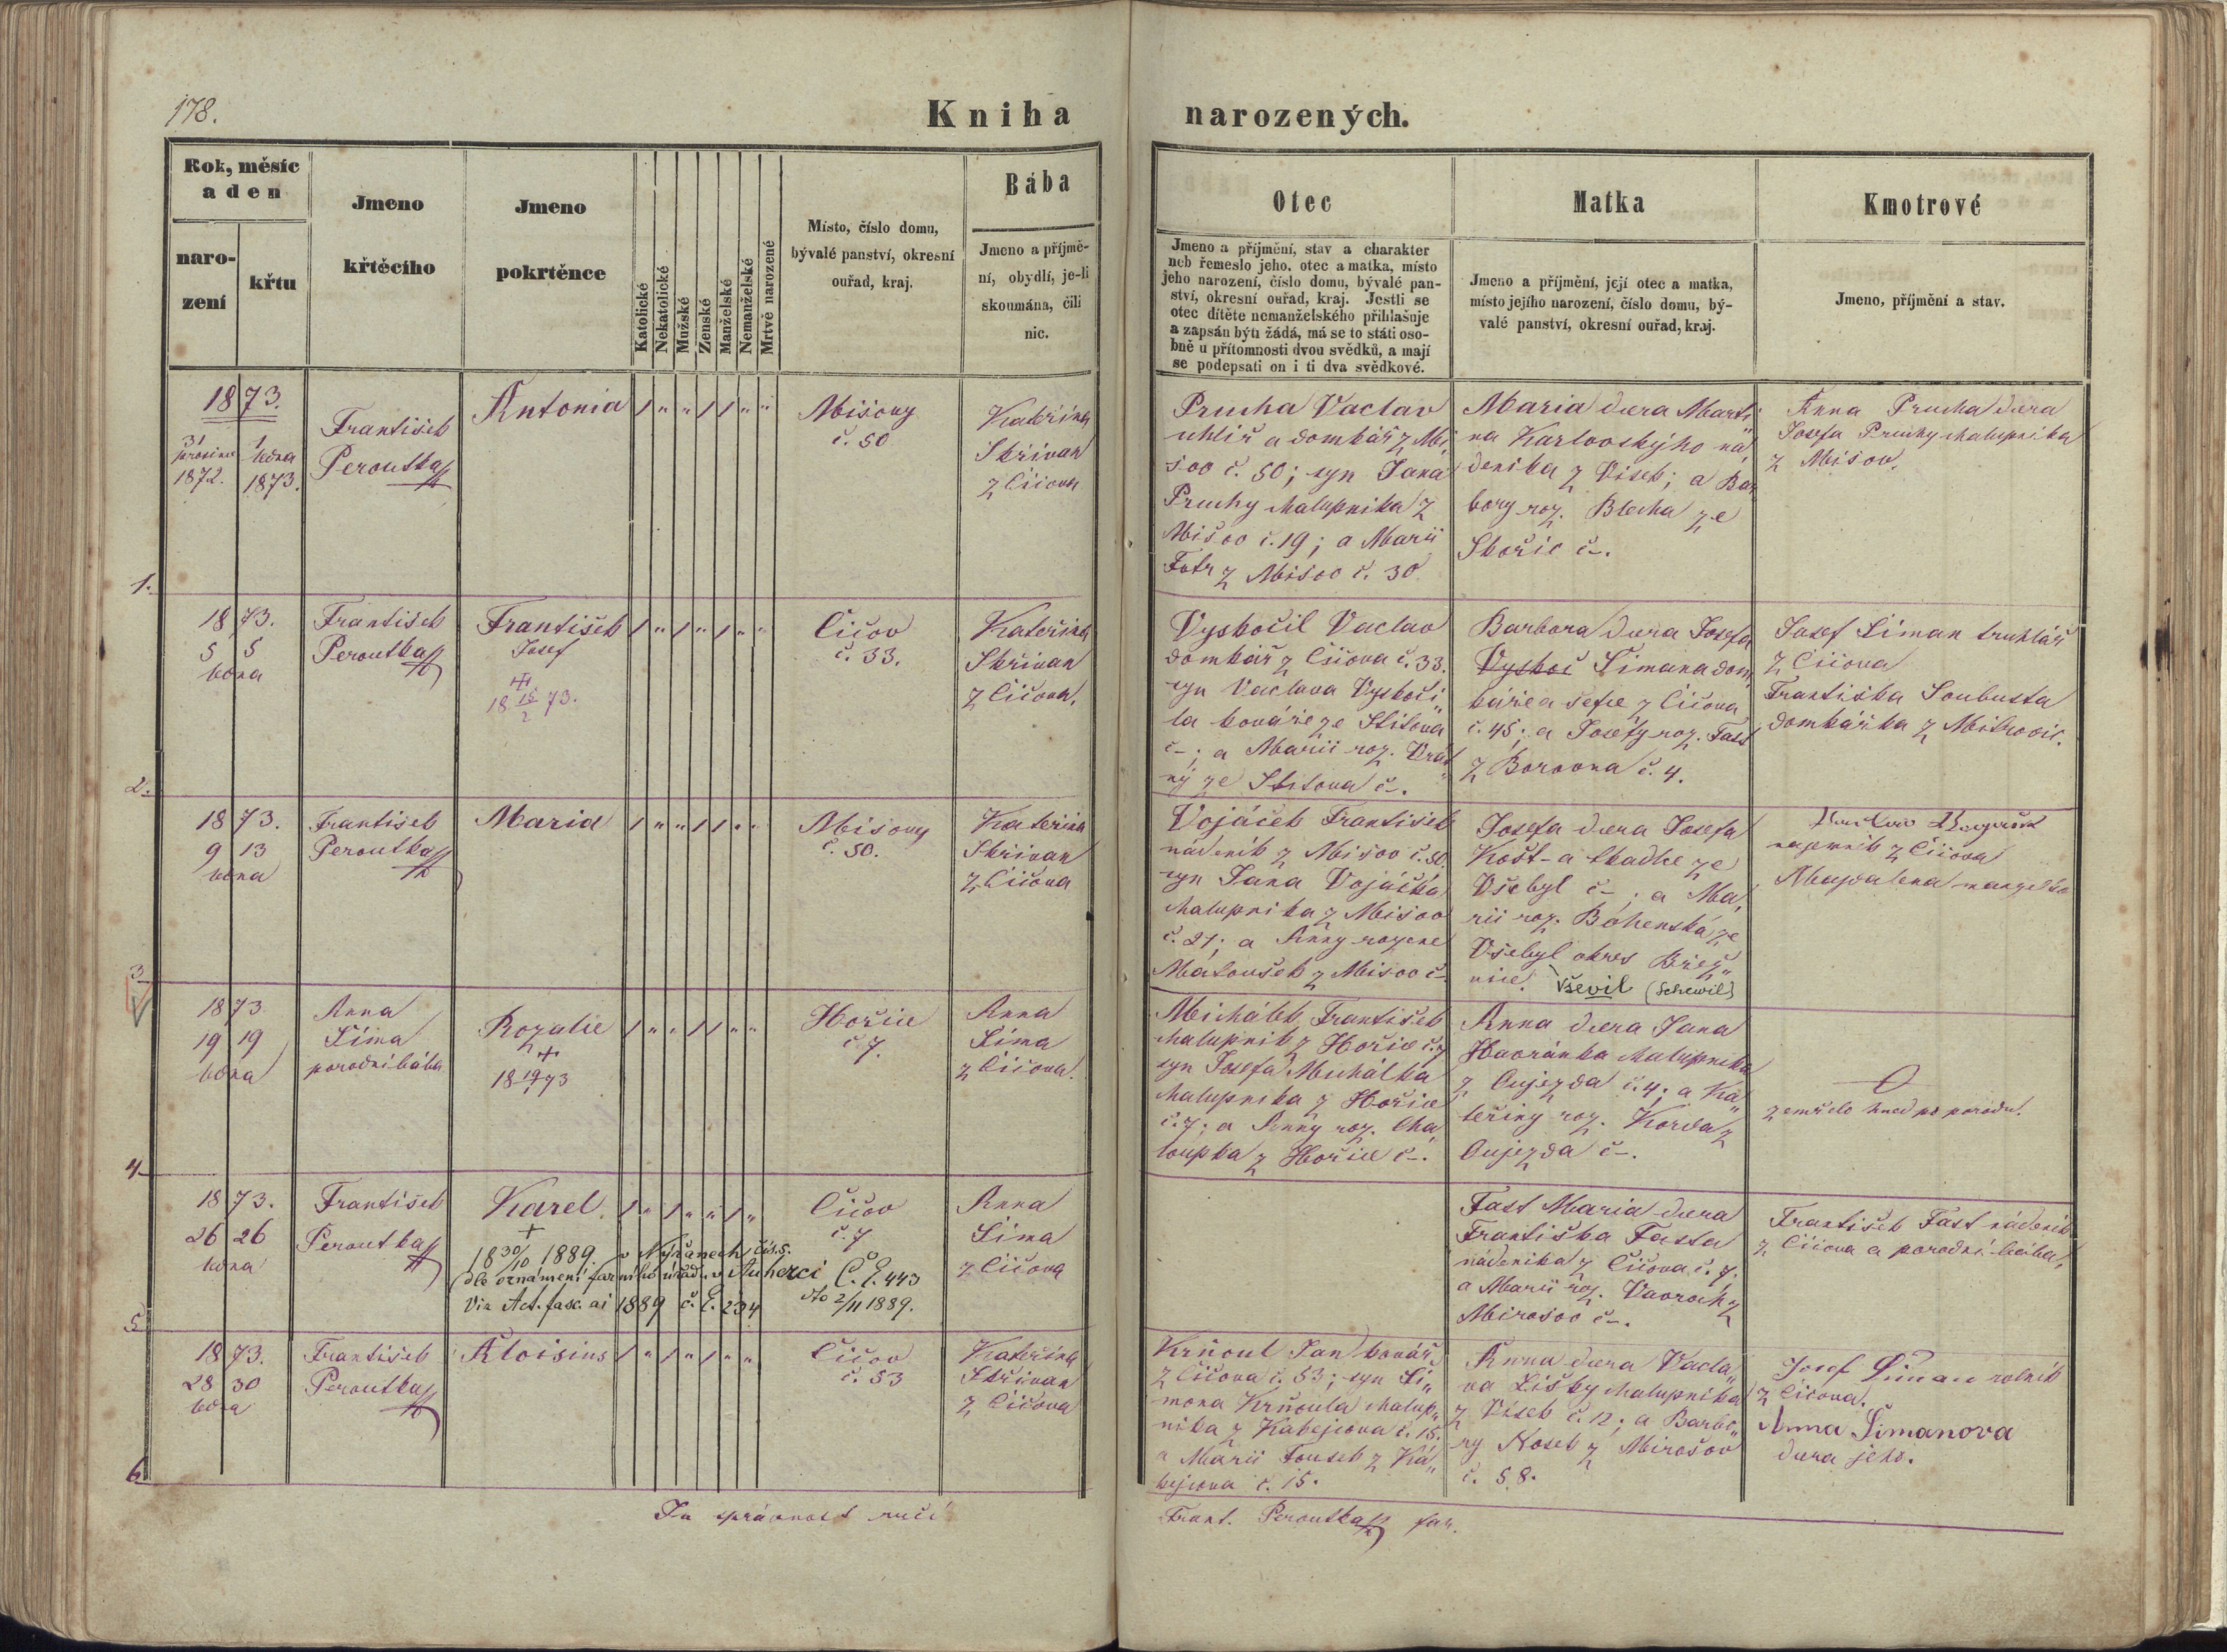 178.
Kniha narozených.
Rok, měsíc
a den
naro-
zení
křtu
Jmeno
křtěcího
Jmeno
pokrtěnce
Katolické
Nekatolické
Mužské
Ženské
Manželské
Nemanželské
Mrtvě narozené
Místo, číslo domu,
bývalé panství, okresní
ouřad, kraj.
Bába
Jmeno a příjmě-
ní, obydlí, je-li
skoumána, čili
nic.
Otec
Jmeno a příjmění, stav a charakter
neb řemeslo jeho, otec a matka, místo
jeho narození, číslo domu, bývalé pan-
ství, okresní ouřad, kraj. Jestli se
otec dítěte nemanželského přihlašuje
a zapsán býti žádá, má se to státi oso-
bně u přítomnosti dvou svědků, a mají
se podepsati on i ti dva svědkové.
Matka
Jmeno a příjmění, její otec a matka,
místo jejího narození, číslo domu, bý-
valé panství, okresní ouřad, kraj.
Kmotrové
Jmeno, příjmění a stav.
1.
1873.
31 prosince 1872.
1 ledna 1873.
František
Peroutka
Antonia
Mišovy
č. 50
Kateřina
Skřivan
z Čičova
Prucha Vaclav
uhliř a domkář z Mi„
šov č. 50; syn Jana
Pruchy chalupnika z
Mišov č. 19; a Marii
Fotr z Mišov č. 30
Maria dcera Marti„
na Karlovskýho ná„
denika z Visek; a Bar„
bory roz. Blecha ze
Skořic č–.
Anna Prucha dcera
Josefa Pruchy chalupnika
z Mišov.
2.
1873.
5 5
ledna
František
Peroutka
František
Josef
18 15/2 73.
Čičov
č. 33.
Kateřina
Skřivan
z Čičova.
Vyskočil Vaclav
domkář z Čičova č. 33.
syn Vaclava Vyskoči„
la kováře ze Štitova
č–; a Marii roz. Vrat„
ný ze Štitova č–.
Barbora dcera Josefa
Vyskoč Šimana dom„
káře a ševce z Čičova
č. 45; a Josefy roz. Fast
z Borovna č. 4.
Josef Šiman truhlář
z Čičova
Františka Soukusta
domkářka z Mitrovic.
3
1873.
9 13
ledna
František
Peroutka
Maria
Mišovy
č. 50.
Kateřina
Skřivan
z Čičova
Vojáček František
nádeník z Mišov č. 50
syn Jana Vojáčka
chalupnika z Mišov
č. 21; a Anny rozene
Matoušek z Mišov č–
Josefa dcera Josefa
Košt– a tkadlce ze
Všebyl č–; a Ma„
rii roz. Bohenská ze
Všebyl okres Břez„
nice. Vševil (Schewil)
najemnik z Čičova
Magdalena manželka
4
1873
19 19
ledna
Anna
Šima
porodní bába
Rozalie
+
18 19/1 73
Hořice
č. 7.
Anna
Šima
z Čičova.
Michálek František
chalupnik z Hořic č. 7
syn Josefa Michálka
chalupnika z Hořice
č. 7; a Anny roz. Cha„
loupka z Hořice č–.
Anna dcera Jana
Havránka chalupnika
z Oujezda č. 4; a Ka„
teřiny roz. Korda z
Oujezda č–.
zemřelo hned po porodu.
5
1873.
26 26
ledna
František
Peroutka
Karel.
+
18 30/10 1889. v Nýřanech, čís. 5.
dle oznámení farního úřadu v Auherci Č. E. 443
Via Act. fasc. ai 1889 č. E. 234 dto 2/11 1889.
Čičov
č. 7
Anna
Šima
z Čičova
Fast Maria dcera
Františka Fasta
nádenika z Čičova č. 7.
a Marii roz. Vavroch z
Mirošov č–.
František Fast nádeník
z Čičova a porodní bába.
6
1873.
28 30
ledna
František
Peroutka
Aloisius
Čičov
č. 53
Kateřina
Skřivan
z Čičova
Krňoul Jan kovář
z Čičova č. 53; syn Ši„
mona Krňoula chalup„
nika z Kakejcova č. 15.
a Marii Toušek z Ka„
kejcova č. 15.
Anna dcera Vacla„
va Lišky chalupnika
z Visek č. 12; a Barbo„
ry Nosek z Mirošov
č. 58.
Josef Šiman rolník
z Čičova.
Anna Šimanova
dcera jeho.
Za správnost ručí
Frant. Peroutka far.